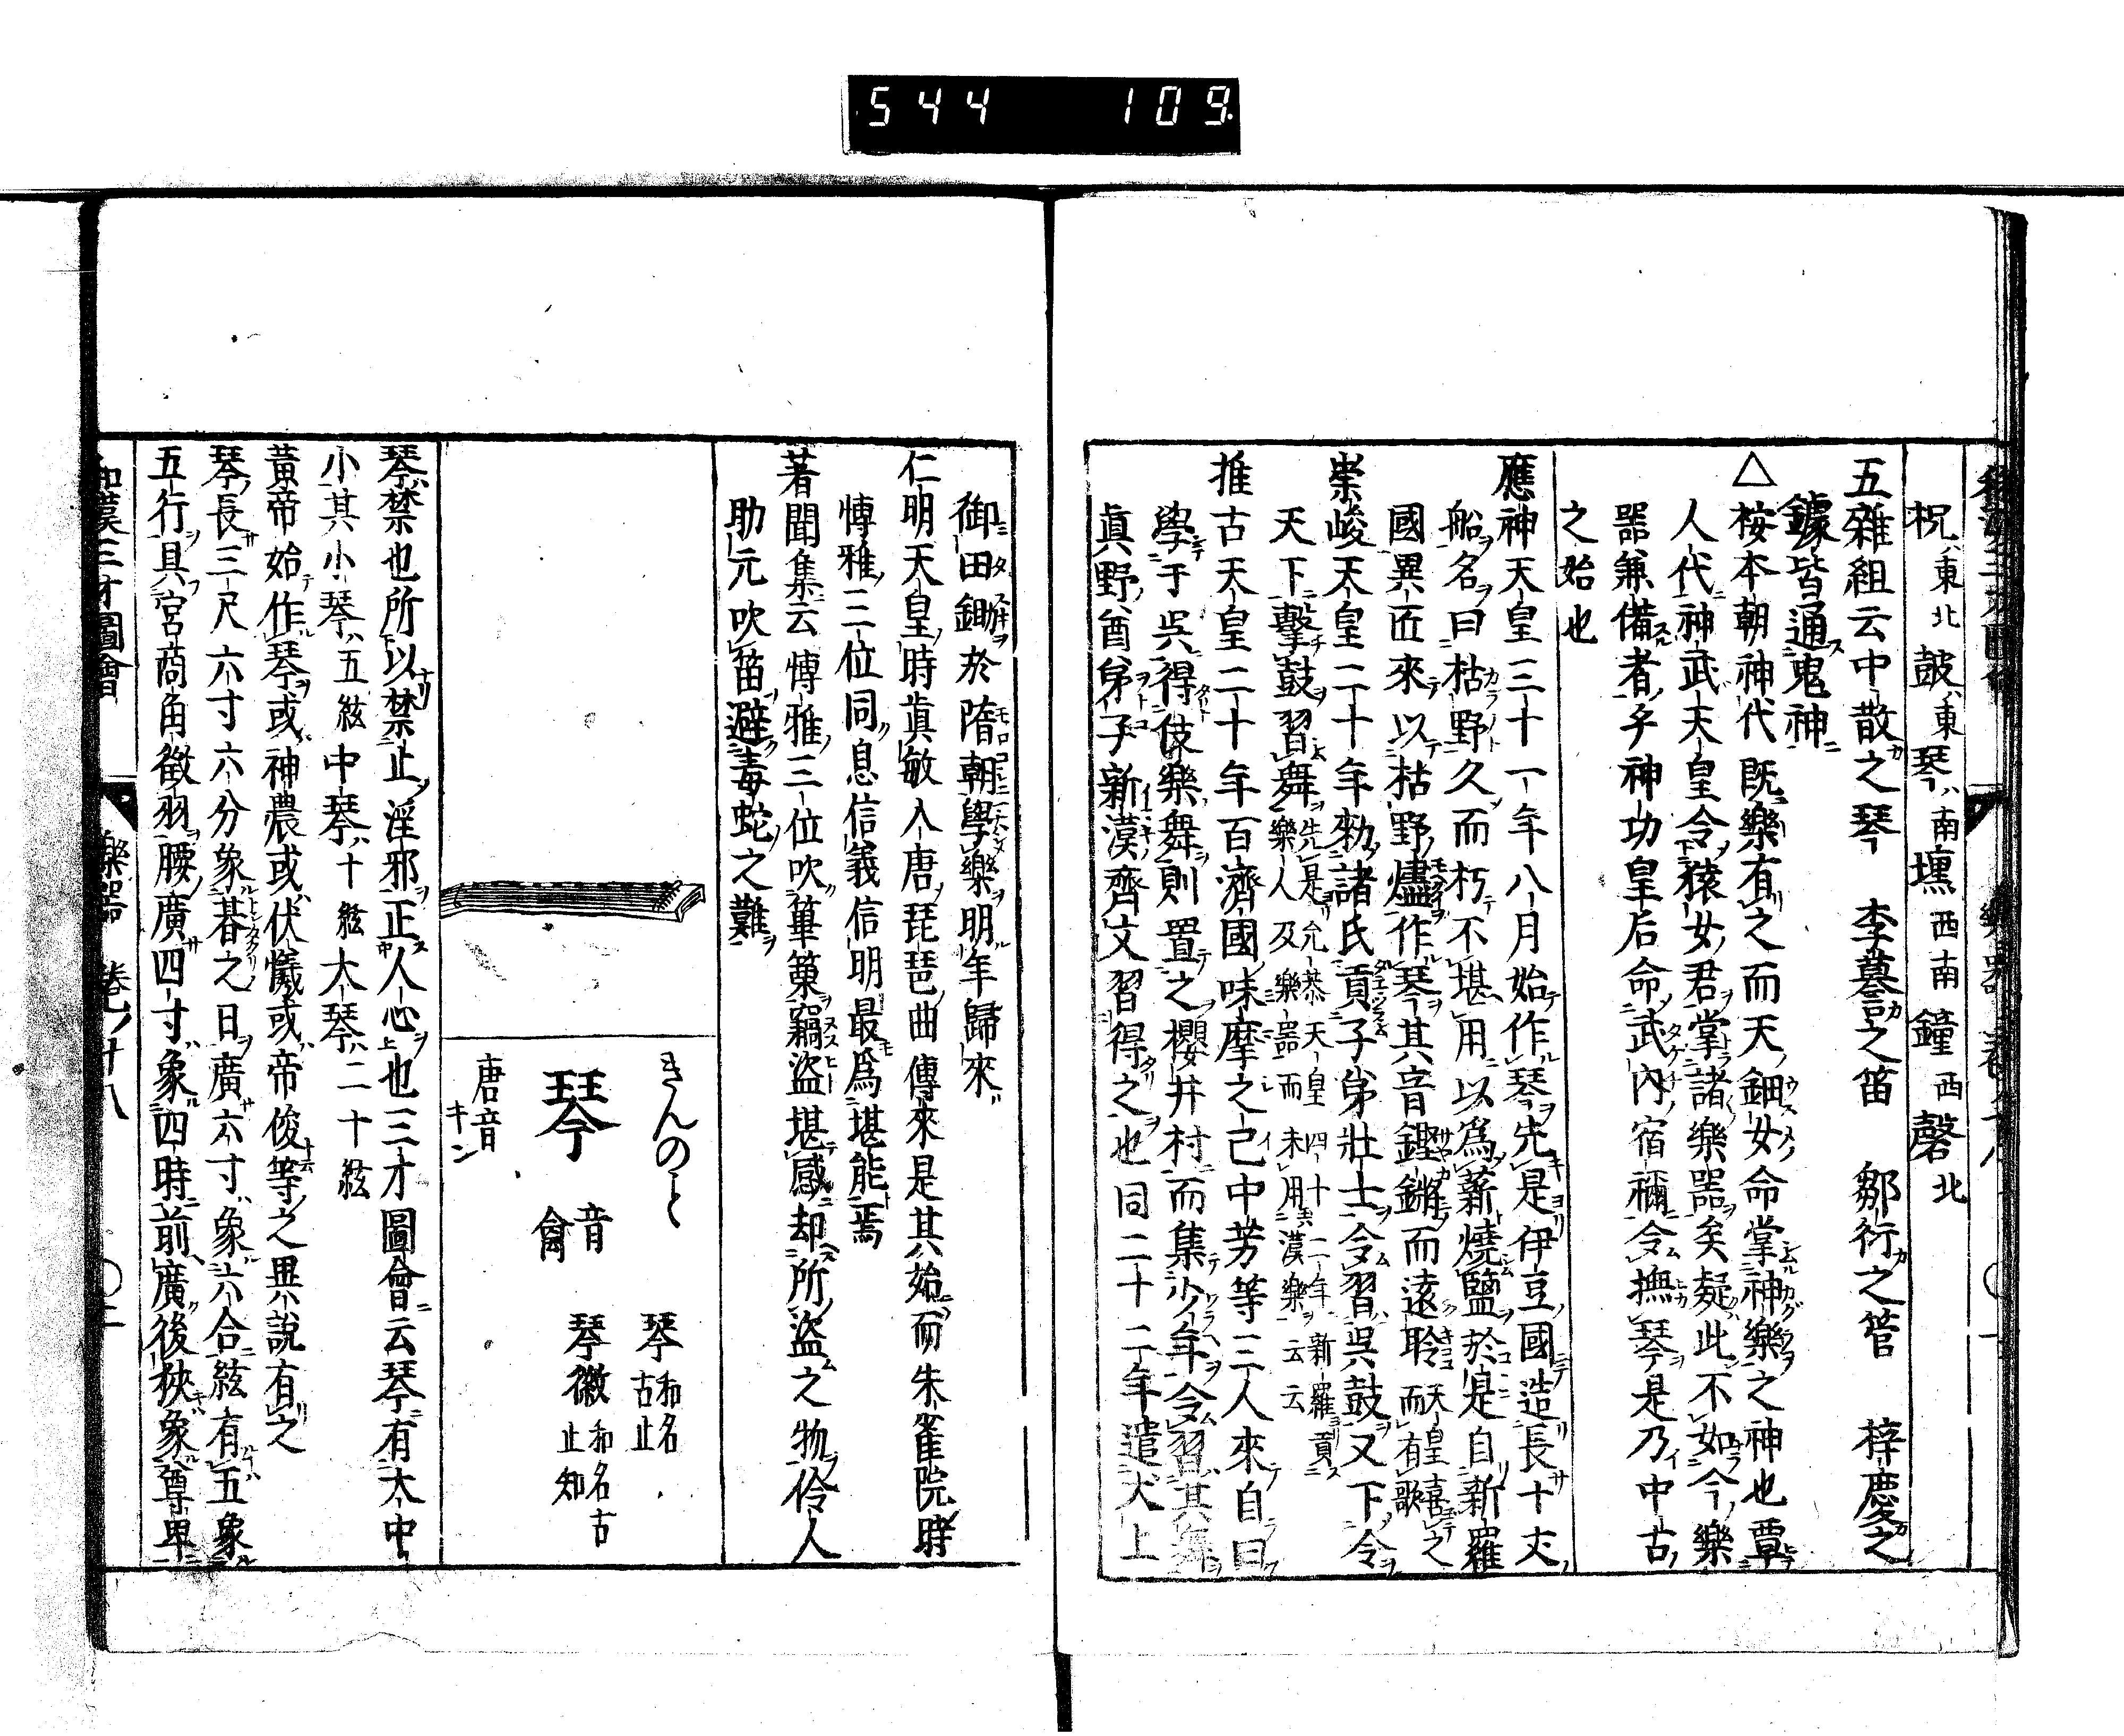 544 109
柷東北皷東琴南壎西南鐘西磬北
五雜組云中散之琴 李謩之笛 鄒衍之管 梓慶之
鐻皆通鬼神
△按本朝神代既樂有之而天鈿女命掌神樂之神也覃
人代神武天皇令猿女君掌諸樂器矣疑此不如今樂
器兼備者乎神功皇后命武內宿禰令撫琴是乃中古
之始也
應神天皇三十一年八月始作琴先是伊豆國造長十丈
船名曰枯野久而朽不堪用以爲薪燒鹽於是自新羅
國異匠來以枯野燼作琴其音鏗鏘而遠聆天皇喜之而有歌
崇峻天皇二十年勑諸氏貢子弟壯士令習吳鼓又下令
天下擊鼓習舞先是允恭天皇四十二年新羅貢樂人及樂器而未用其漢樂云云
推古天皇二十年百濟國味摩之己中芳等三人來自曰
學于吳得伎樂舞則置之櫻井村而集少年令習其舞
眞野酋弟子新漢齊文習得之也同二十二年遣犬上
御田鋤於隋朝學樂明年歸來
仁明天皇時眞敏入唐琵琶曲傳來是其始而朱雀院時
愽雅三位同息信義信明最爲堪能焉
著聞集云愽雅三位吹篳篥竊盜堪感却所盜之物伶人
助元吹笛避毒蛇之難
きんのこと
琴 音禽
唐音キン
琴和名古止
琴徽和名古止知
琴禁也所以禁止淫邪正人心也三才圖會云琴有大中
小其小琴五絃中琴十絃大琴二十絃
黃帝始作琴或神農或伏犧或帝俊等之異說有之
琴長三尺六寸六分象朞之日廣六寸象六合絃有五象
五行具宮商角徵羽腰廣四寸象四時前廣後狹象尊卑
和漢三才圖會 樂器 卷ノ十八 〇二